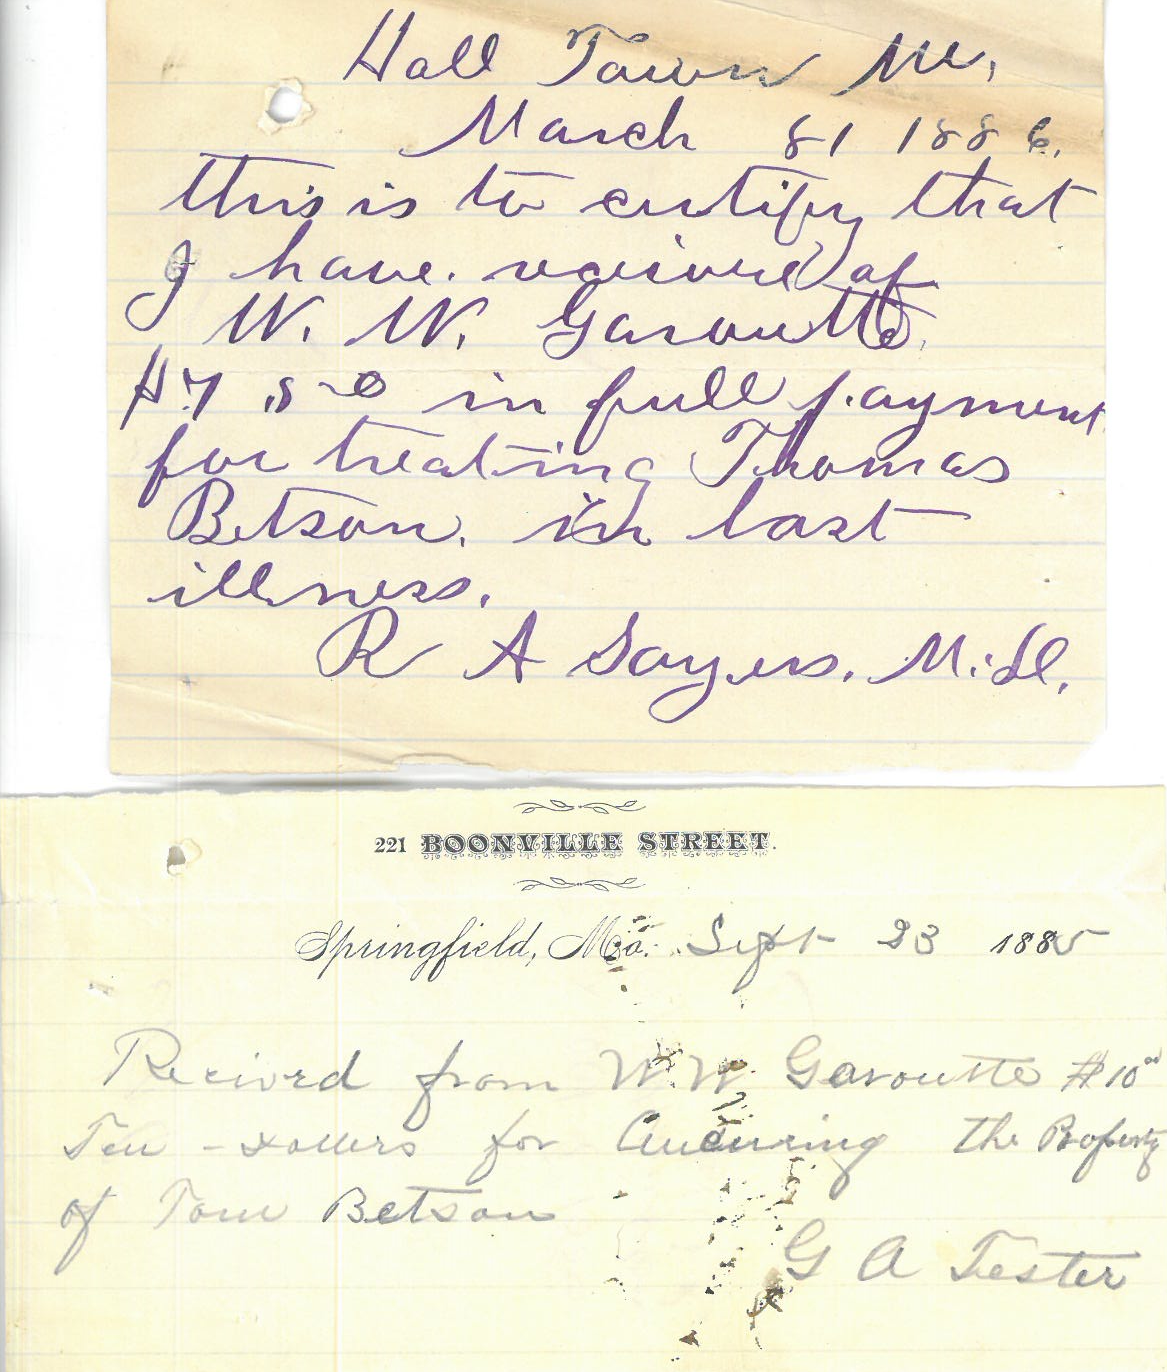 Hall Town Mo.
March 31 1886.
this is to certify that
I have. received of
W. W. Garoutte.
$7.50 in full payment
for treating Thomas
Betson. in last
illness.
R A Sayers. M.D.
221 BOONVILLE STREET.
Springfield, Mo. Sept 23 1885
Recived from W W Garoutte $10.00
Ten - dollars for the Property
of Tom Betson
G A Tester